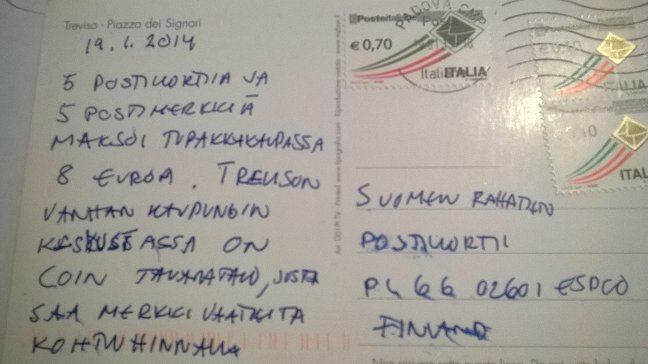 Treviso - Piazza dei Signori
19.1.2014
5 POSTIKORTIA JA
5 POSTIMERKKIÄ
MAKSOI TUPAKKAKAUPASSA
8 EUROA. TREVISON
VANHAN KAUPUNGIN
KESKUSTASSA ON
COIN TAVARATALO, JOSTA
SAA MERKKIVAATTEITA
KOHTUHINNALLA
PADOVA CMP
Posteitaliane
€ 0,70
ITALIA
ITALIA
ITALI
SUOMEN RAHATIEN
POSTIKORTTI
PL 66 02601 ESPOO
FINLAND